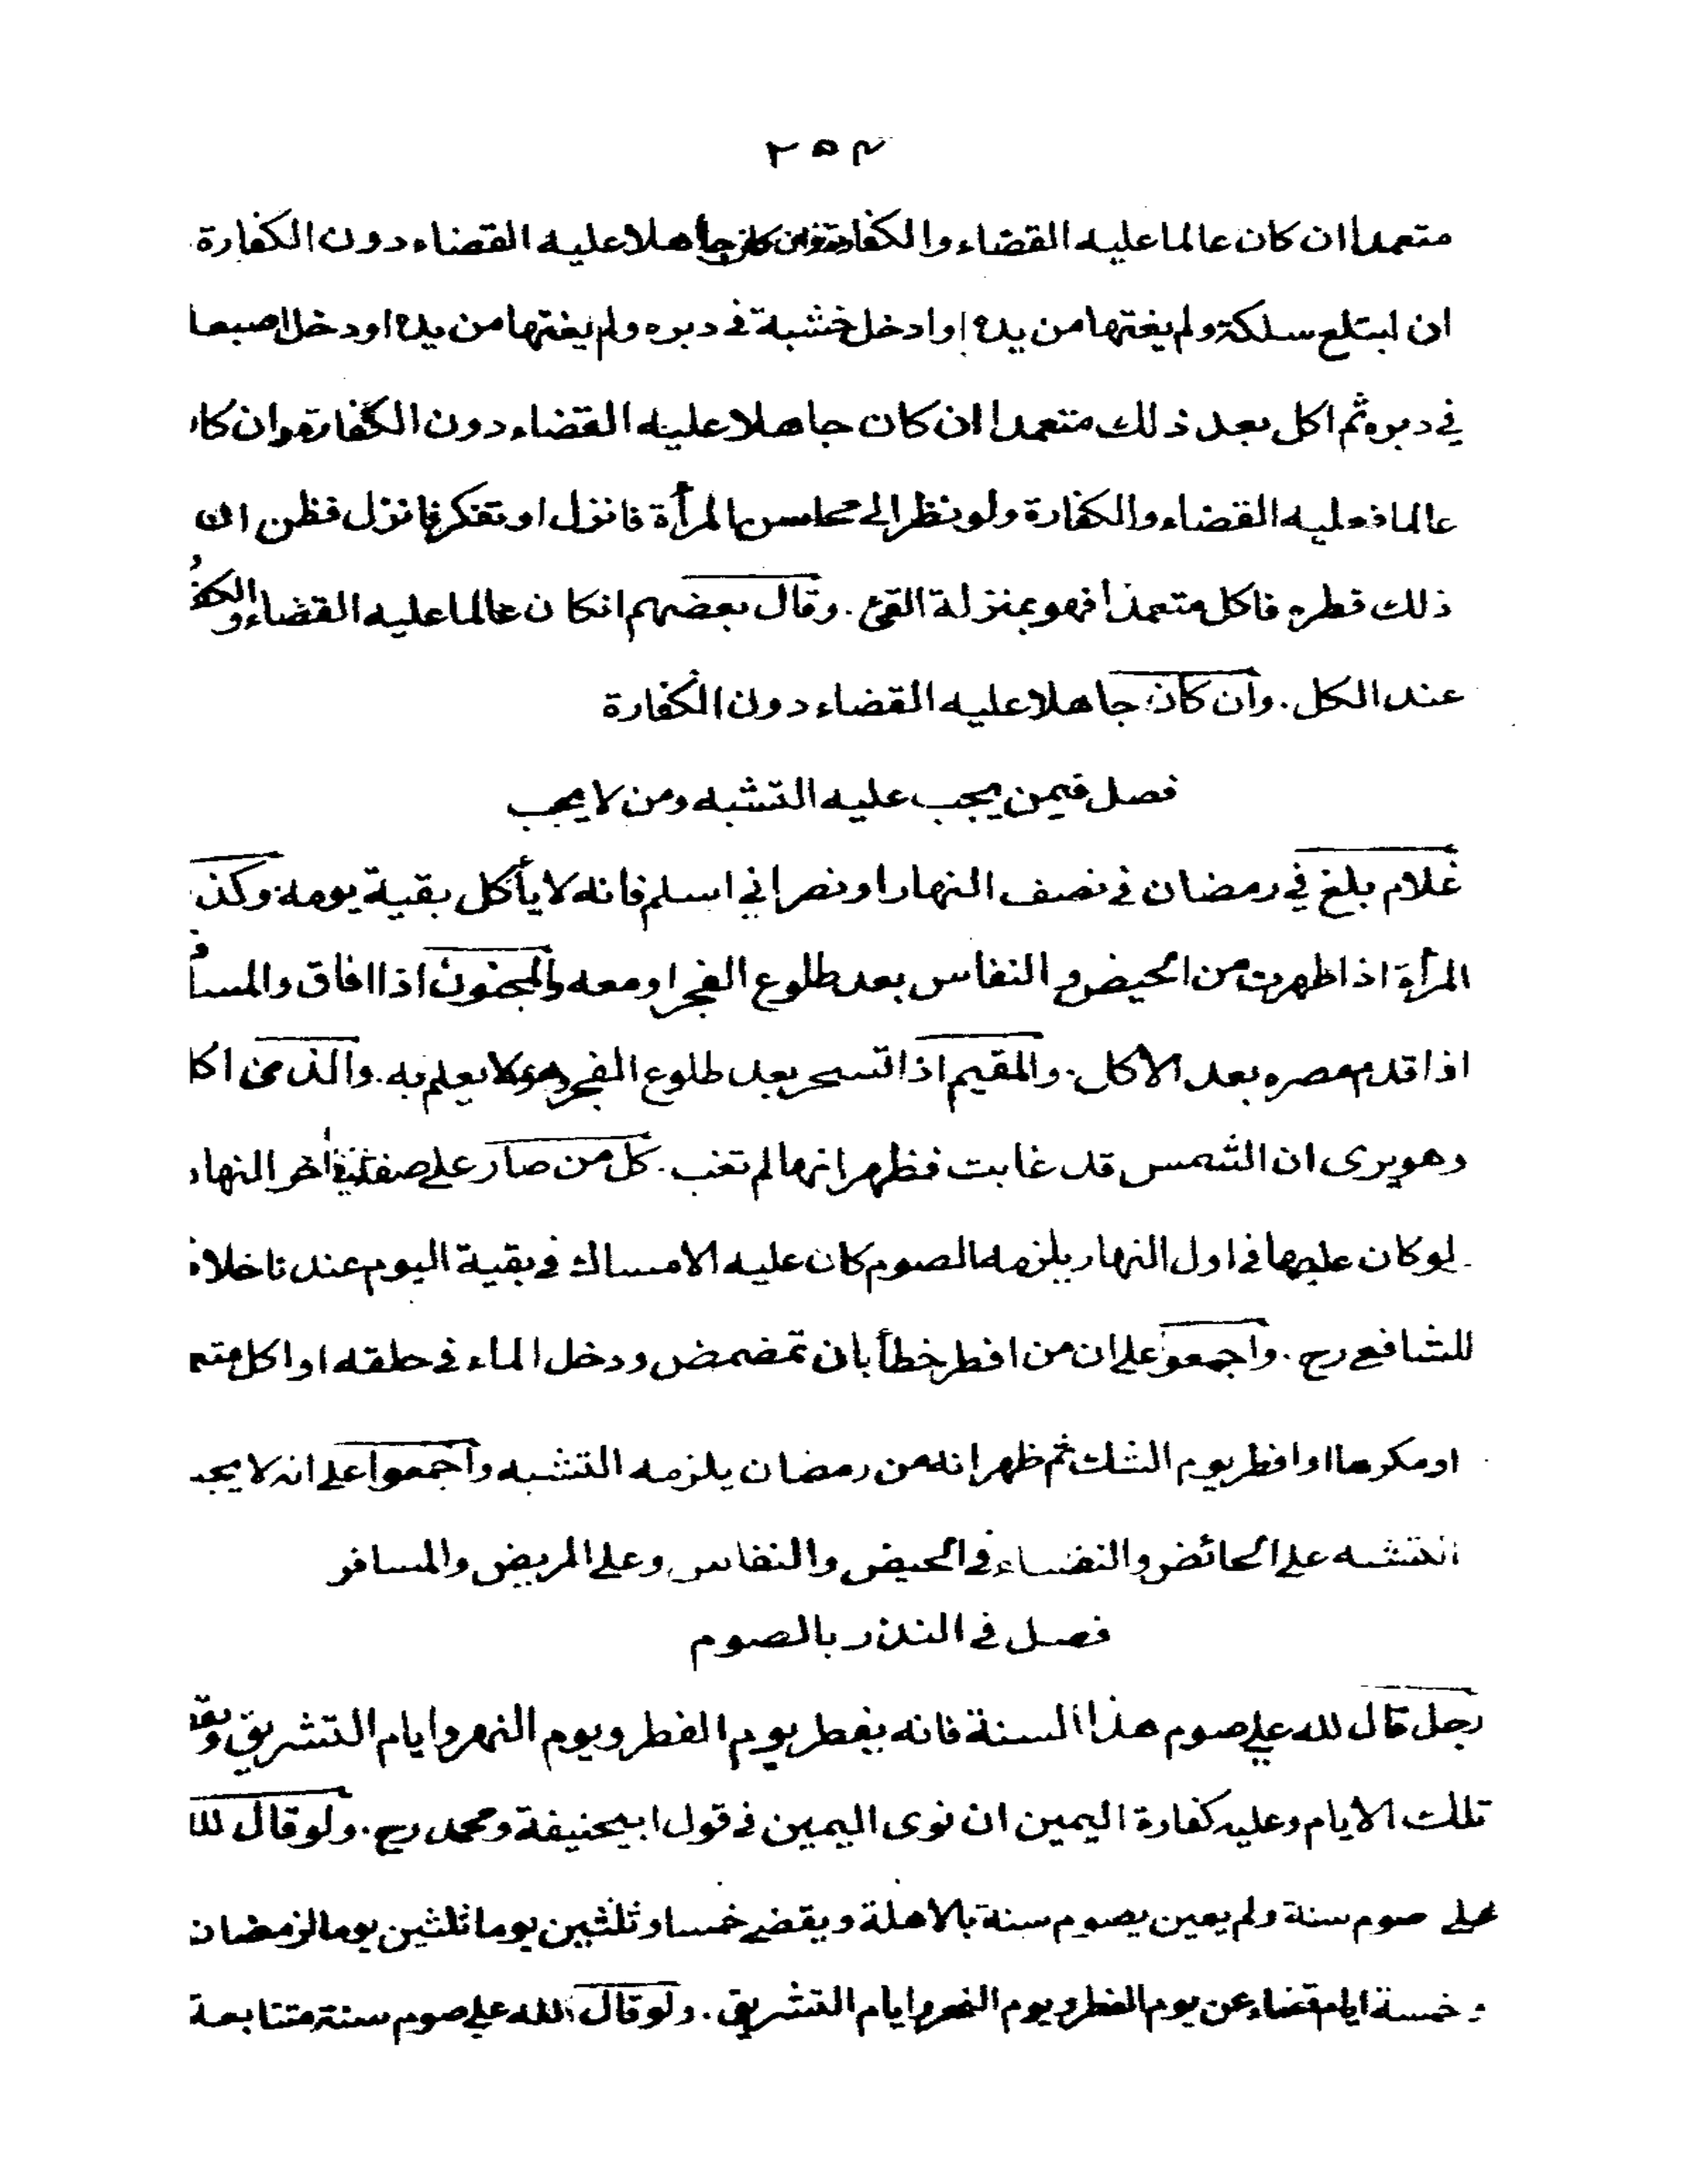 ٢٥٣
متعمدا ان كان عالما عليه القضاء والكفارة وان كان جاهلا عليه القضاء دون الكفارة
ان ابتلع سلكة ولم يغتها من يده او ادخل خشبة فى دبره ولم يغتها من يده او دخل اصبعا
في دبره ثم اكل بعد ذلك متعمدا ان كان جاهلا عليه القضاء دون الكفارة وان كا
عالما فعليه القضاء والكفارة ولو نظر الى محاسن المرأة فانزل او تفكر فانزل فظن ان
ذلك فطره فاكل متعمدا فهو بمنزلة القئ . وقال بعضهم انكان عالما عليه القضاء والكف
عند الكل . وان كان جاهلا عليه القضاء دون الكفارة
فصل فيمن يجب عليه التشبه ومن لا يجب
غلام بلغ في رمضان فى نصف النهار او نصراني اسلم فانه لا يأكل بقية يومه وكذ
المرأة اذا طهرت من الحيض و النفاس بعد طلوع الفجر او معه والمجنون اذا افاق والمسا
اذا قدم مصره بعد الأكل . والمقيم اذا تسحر بعد طلوع الفجر وهو لا يعلم به . والذى اكا
وهو يرى ان الشمس قد غابت فظهر انها لم تغب . كل من صار على صفة فى اخر النها
لو كان عليها فى اول النهار يلزمه الصوم كان عليه الامساك فى بقية اليوم عندنا خلاف
للشافعى رح . واجمعوا على ان من افطر خطأ بان تمضمض ودخل الماء فى حلقه او اكل متع
او مكرها او افطر يوم الشك ثم ظهر انه من رمضان يلزمه التشبه واجمعوا على انه لا يجب
التشبه على الحائض والنفساء فى الحيض والنفاس وعلى المريض والمسافر
فصل فى النذر بالصوم
رجل قال لله علي صوم هذا السنة فانه يفطر يوم الفطر ويوم النحر وايام التشريق ويق
تلك الايام وعليه كفارة اليمين ان نوى اليمين فى قول ابيحنيفة ومحمد رح . ولو قال لل
على صوم سنة ولم يعين يصوم سنة بالاهلة ويقضى خمسا وثلثين يوما ثلثين يوما لرمضان
وخمسة ايام قضاء عن يوم الفطر ويوم النحر وايام التشريق . ولو قال لله علي صوم سنة متتابعة